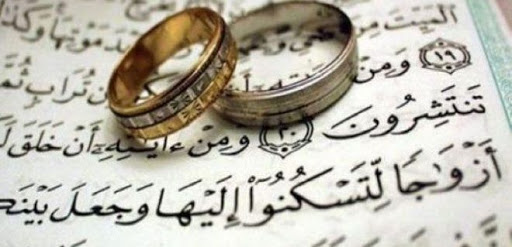 ٱلْمَيِّتَ مِنَ مَوْتِهَا وَكَذَ
١٩ وَمِنْ تُرَابٍ ثُمَّ
تَنتَشِرُونَ ٢٠ وَمِنْ ءَايَٰتِهِۦٓ أَنْ خَلَقَ لَ
أَزْوَٰجًا لِّتَسْكُنُوٓا۟ إِلَيْهَا وَجَعَلَ بَيْنَكـ